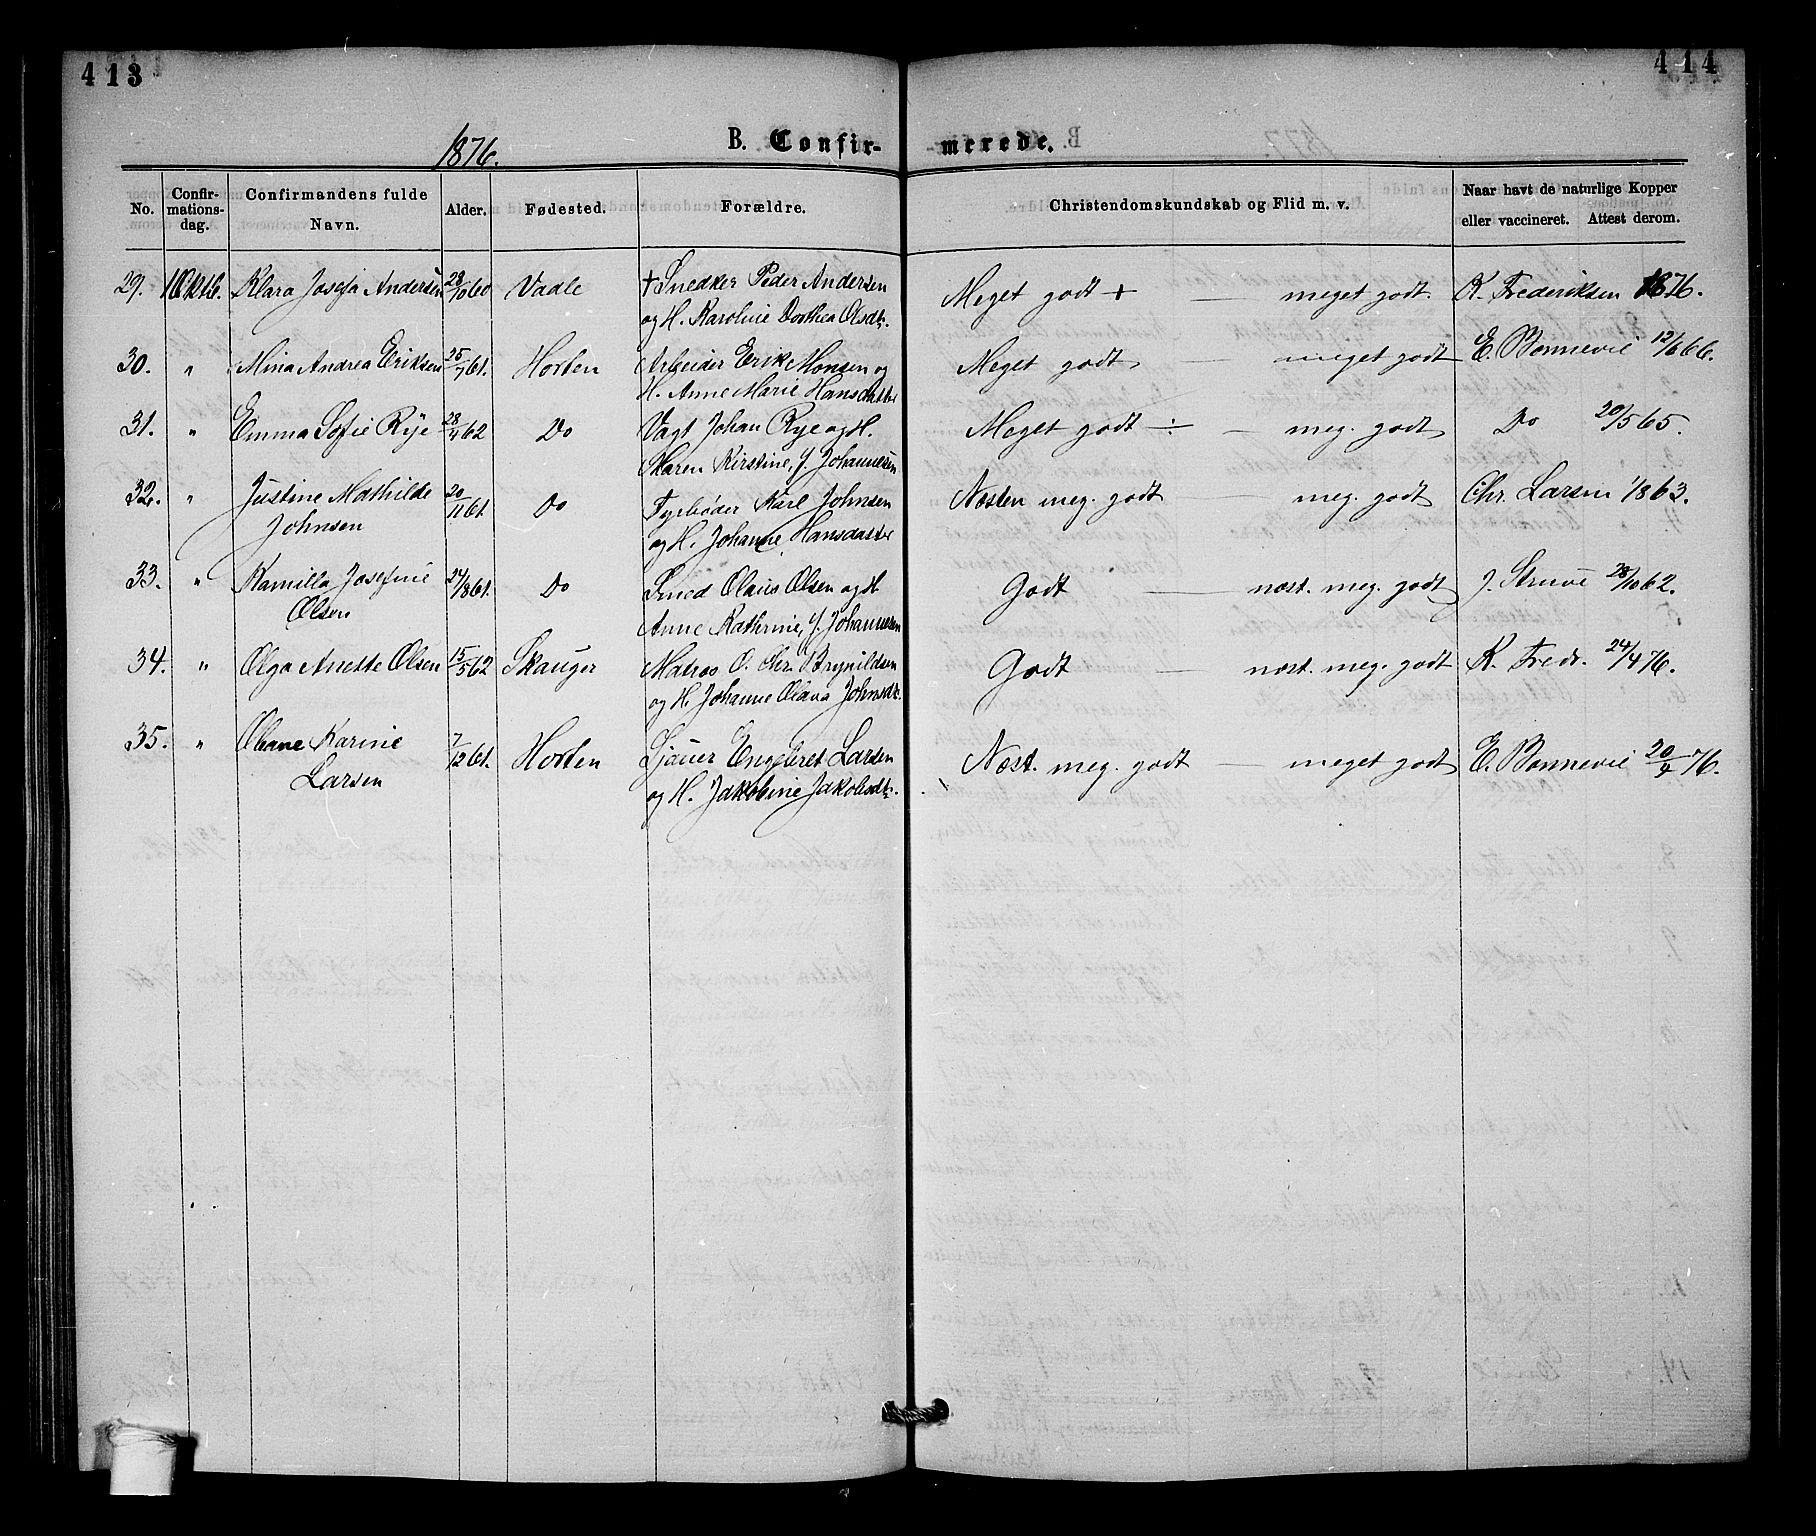 413
414
1876.
B. Confir-
merede.
No.
Confir-
mations-
dag.
Confirmandens fulde
Navn.
Alder.
Fødested.
Forældre.
Christendomskundskab og Flid m. v.
Naar havt de naturlige Kopper
eller vaccineret. Attest derom.
29. 1 Oktb. Klara Josefa Andersen 28/10 60 Vadle † Snedker Peder Andersen Meget godt + — meget godt. K. Frederiksen 1876.
og H. Karoline Dorthea Olsdtr.
30. " Mina Andrea Eriksen 25/7 61. Horten Arbeider Erik Monsen og Meget godt — meget godt E. Bonnevie 12/6 66.
H. Anne Marie Hansdatter
31. " Emma Sofie Rye 28/4 62 Do Vagt Johan Rye og H. Meget godt ÷ — meg. godt Do 20/5 65.
Maren Kirstine, f. Johannesen
32. " Justine Mathilde 20/11 61. Do Fyrbøder Karl Johnsen Næsten meg. godt — meg. godt Chr. Larsen 1863.
Johnsen og H. Johanne Hansdatter
33. " Kamilla Josefine 24/8 61. Do Smed Olaus Olsen og H. Godt — næst. meg. godt J. Struve 28/10 62.
Olsen Anne Kathrine, f. Johannesen
34. " Olga Anette Olsen 15/5 62 Skauger Matros O. Chr. Brynildsen Godt — næst. meg. godt K. Fredr. 24/4 76.
og H. Johanne Olava Johnsdtr.
35. " Oleane Karine 7/12 61. Horten Sjauer Engebret Larsen Næst. meg. godt — meget godt E. Bonnevie 20/4 76.
Larsen og H. Jakobine Jakobsdtr.